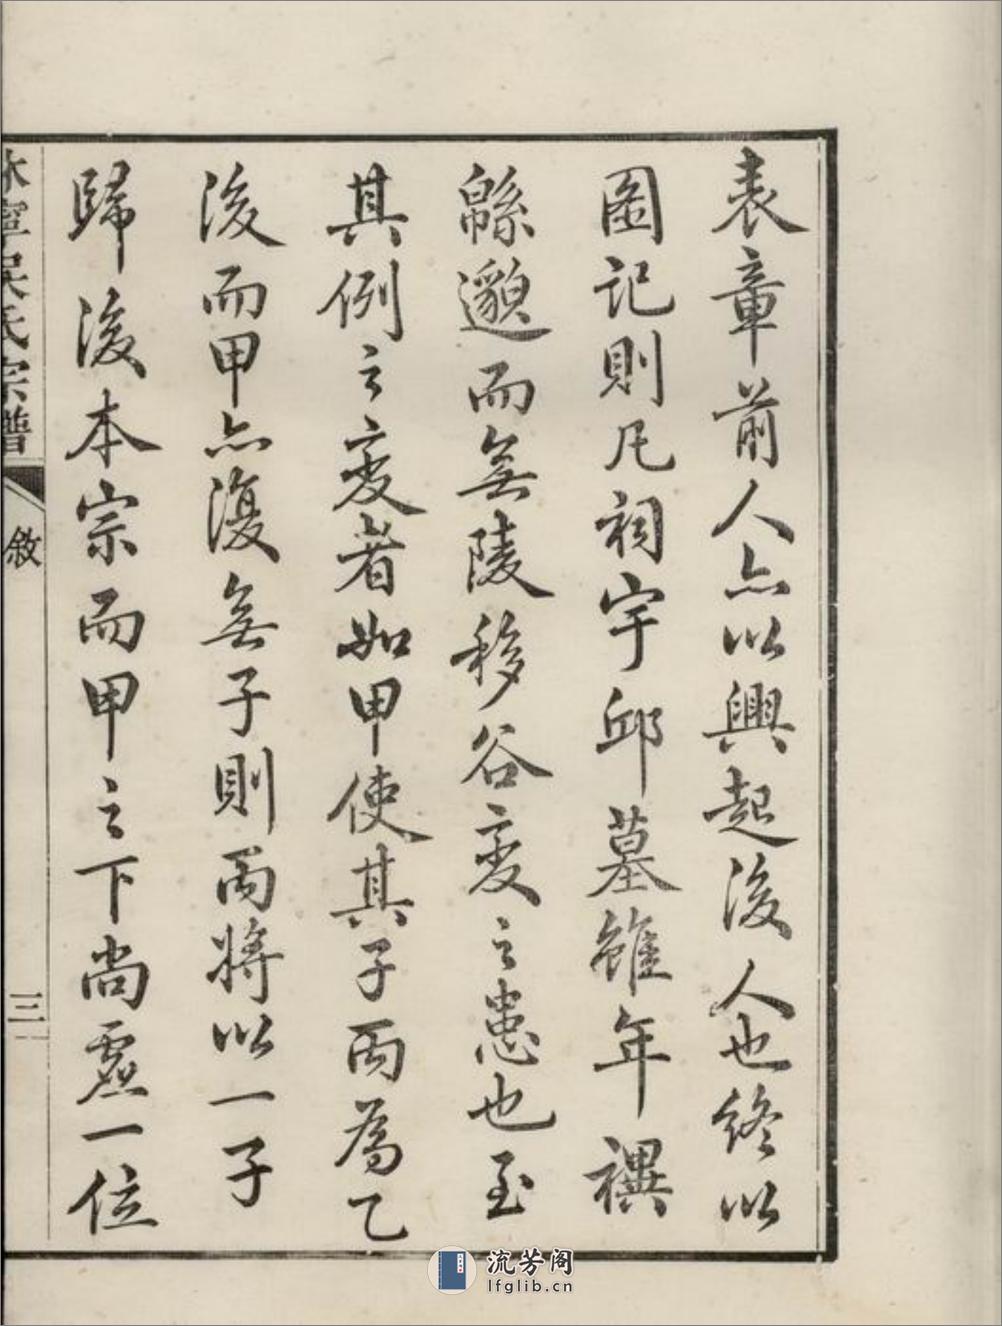 表章前人亦以興起後人也終以
圖記則凡祠宇邱墓雖年禩
緜邈而無陵移谷變之患也至
其例之變者如甲使其子丙為乙
後而甲亦復無子則丙將以一子
歸後本宗而甲之下尚虛一位
休寧吳氏宗譜
敘
三
流芳阁
lfglib.cn